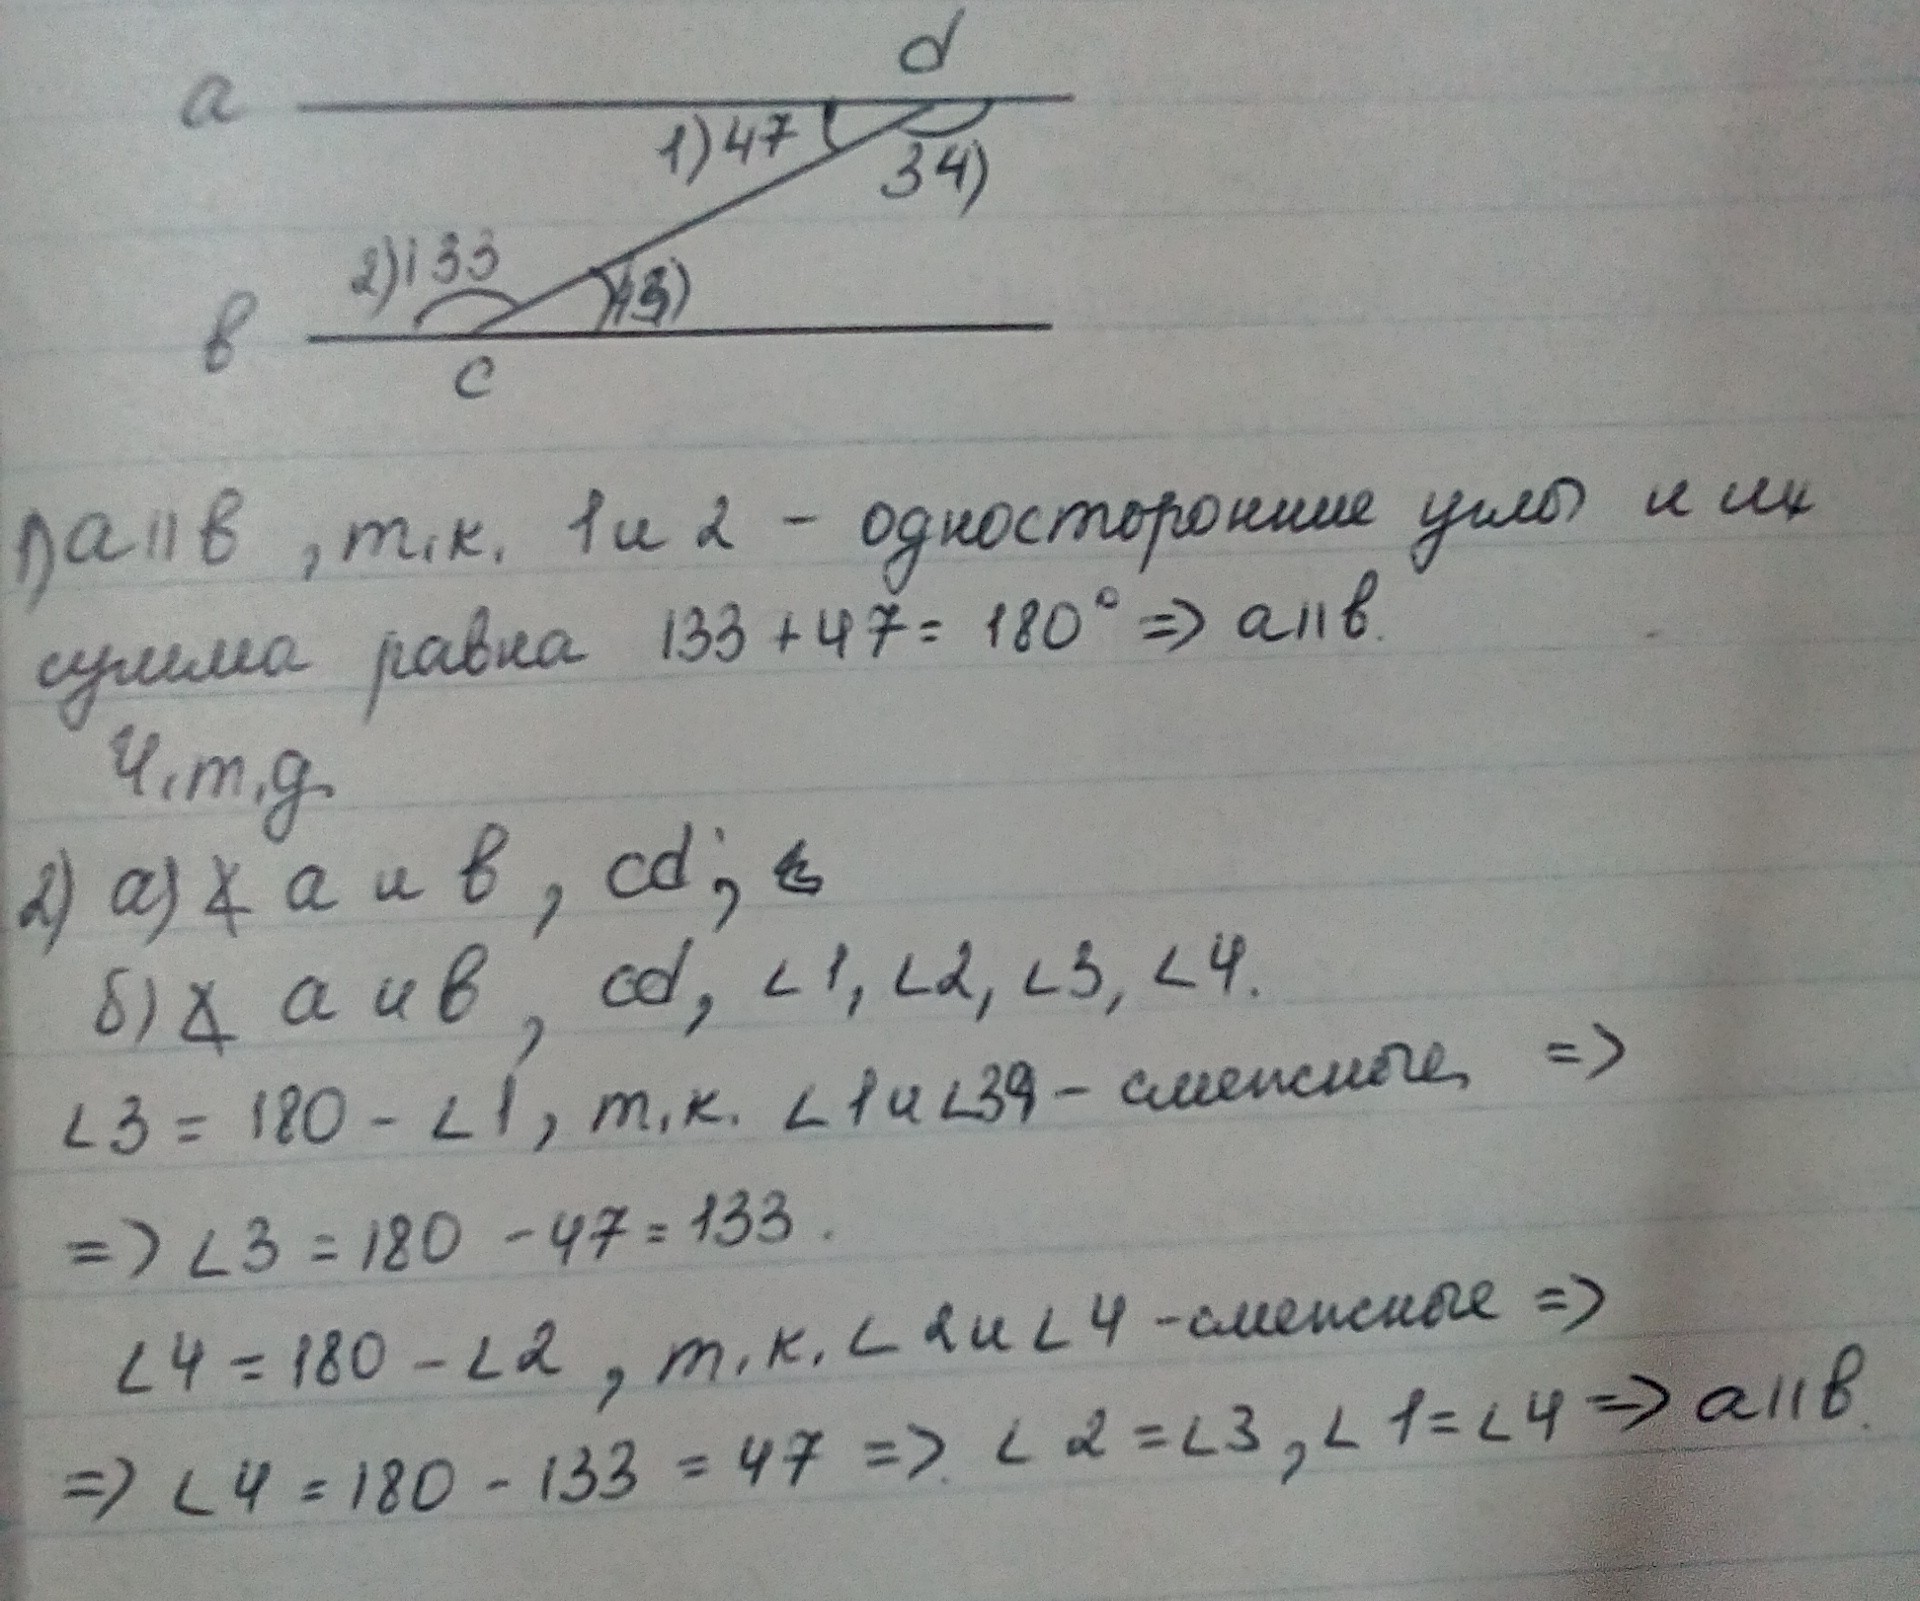 d
a
1)47
34)
2)133
в
c
1) a || в , т.к. 1 и 2 - односторонние углы и их
сумма равна 133 + 47 = 180° => a || в.
Ч.т.д.
2) а) ∡ a и в , cd ;
б) ∡ a и в , cd, ∠1, ∠2, ∠3, ∠4.
∠3 = 180 - ∠1, т.к. ∠1 и ∠3 - смежные, =>
=> ∠3 = 180 - 47 = 133 .
∠4 = 180 - ∠2 , т.к. ∠2 и ∠4 - смежные =>
=> ∠4 = 180 - 133 = 47 => ∠2 = ∠3, ∠1 = ∠4 => a || в.